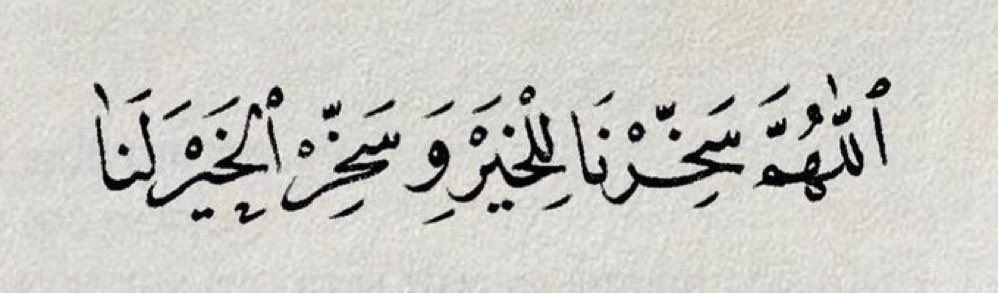 ٱللّٰهُمَّ سَخِّرْنَا لِلْخَيْرِ وَسَخِّرْ ٱلْخَيْرَ لَنَا